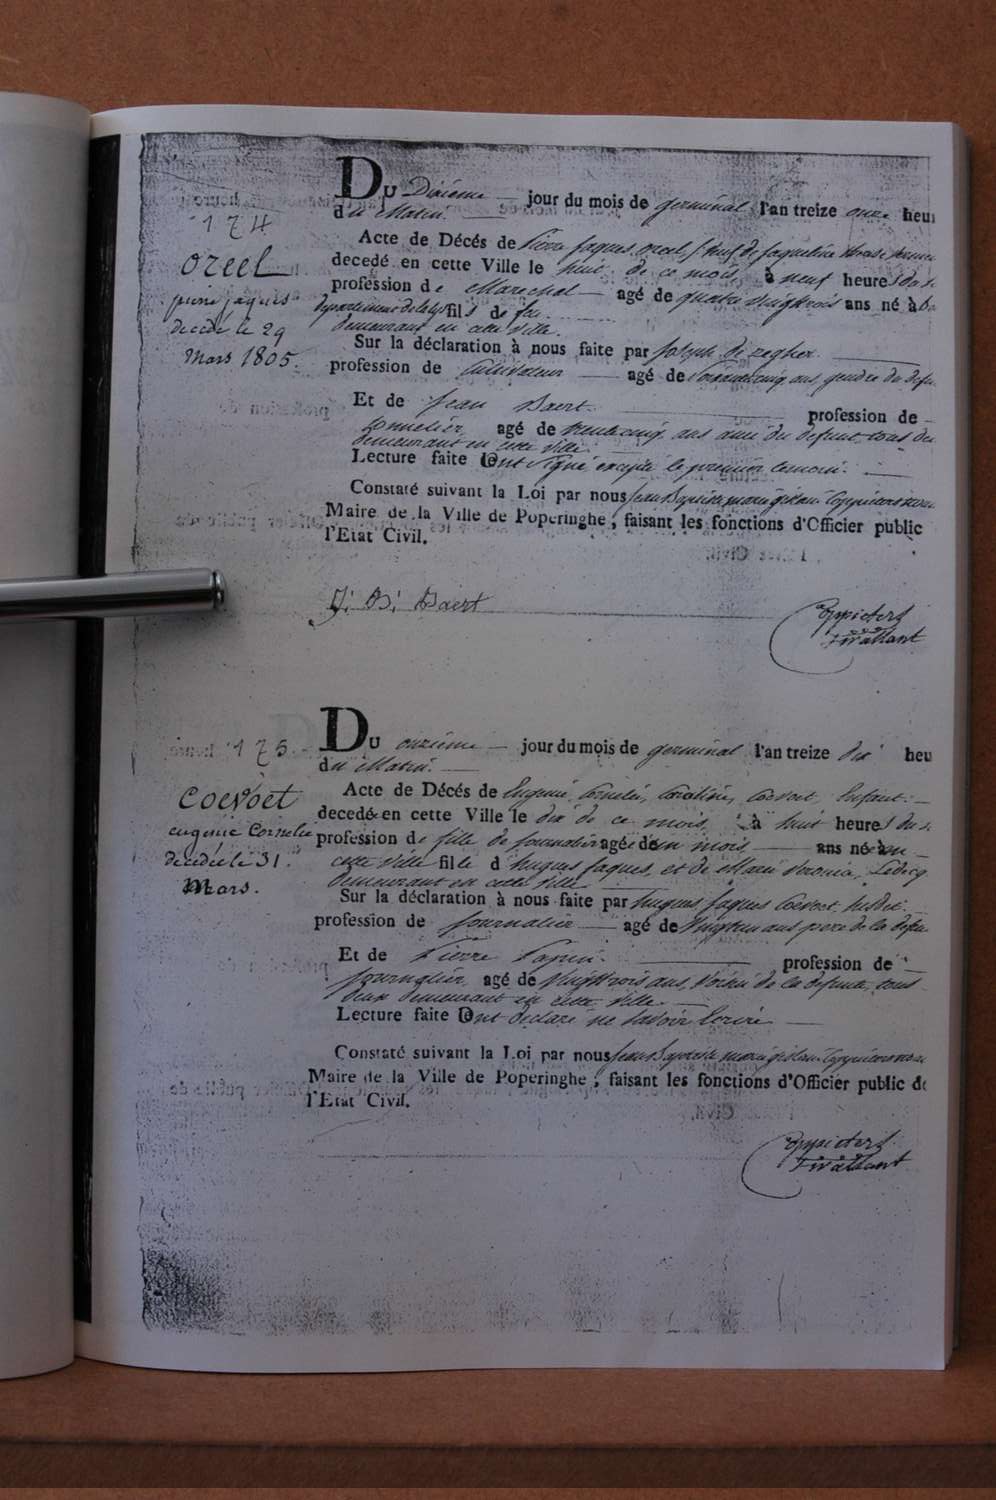 174
oreel
pierre jaques
decedé le 29
Mars 1805.
Du Dixieme jour du mois de germinal l'an treize onze heu
du Matin.
Acte de Décés de Pierre Jaques oreel, veuf de Jaqueline
decedé en cette Ville le huit de ce mois, à neuf heures du s
profession de Marechal agé de quatre vingt trois ans né à
departement de la lys fils de feu
demeurant en cette ville.
Sur la déclaration à nous faite par Joseph de zegher
profession de Cultivateur agé de ans gendre du defu
Et de Jean Baert profession de
agé de trente cinq ans ami du defunt tous de
demeurant en cette ville
Lecture faite ont signé excepté le premier temoin.
Constaté suivant la Loi par nous Jean Baptiste
Maire de la Ville de Poperinghe, faisant les fonctions d'Officier public
l'Etat Civil.
J: B: Baert
175.
coevoet
eugenie Cornelie
decedée le 31
Mars.
Du onzieme jour du mois de germinal l'an treize dix heu
du Matin.
Acte de Décés de Eugenie, Cornelie, Caroline, Coevoet, Enfant
decedée en cette Ville le dix de ce mois, à huit heures du s
profession de fille de journalier agé d'un mois ans né en
cette ville fille d'hugues Jaques, et de Marie Veronica,
demeurant en cette ville
Sur la déclaration à nous faite par hugues Jaques Coevoet
profession de journalier agé de Vingt un ans pere de la defu
Et de Pierre profession de
journalier, agé de Vingt trois ans, Voisin de la defunte, tous
deux demeurant en cette ville.
Lecture faite ont declaré ne savoir Ecrire
Constaté suivant la Loi par nous Jean Baptiste
Maire de la Ville de Poperinghe, faisant les fonctions d'Officier public de
l'Etat Civil.